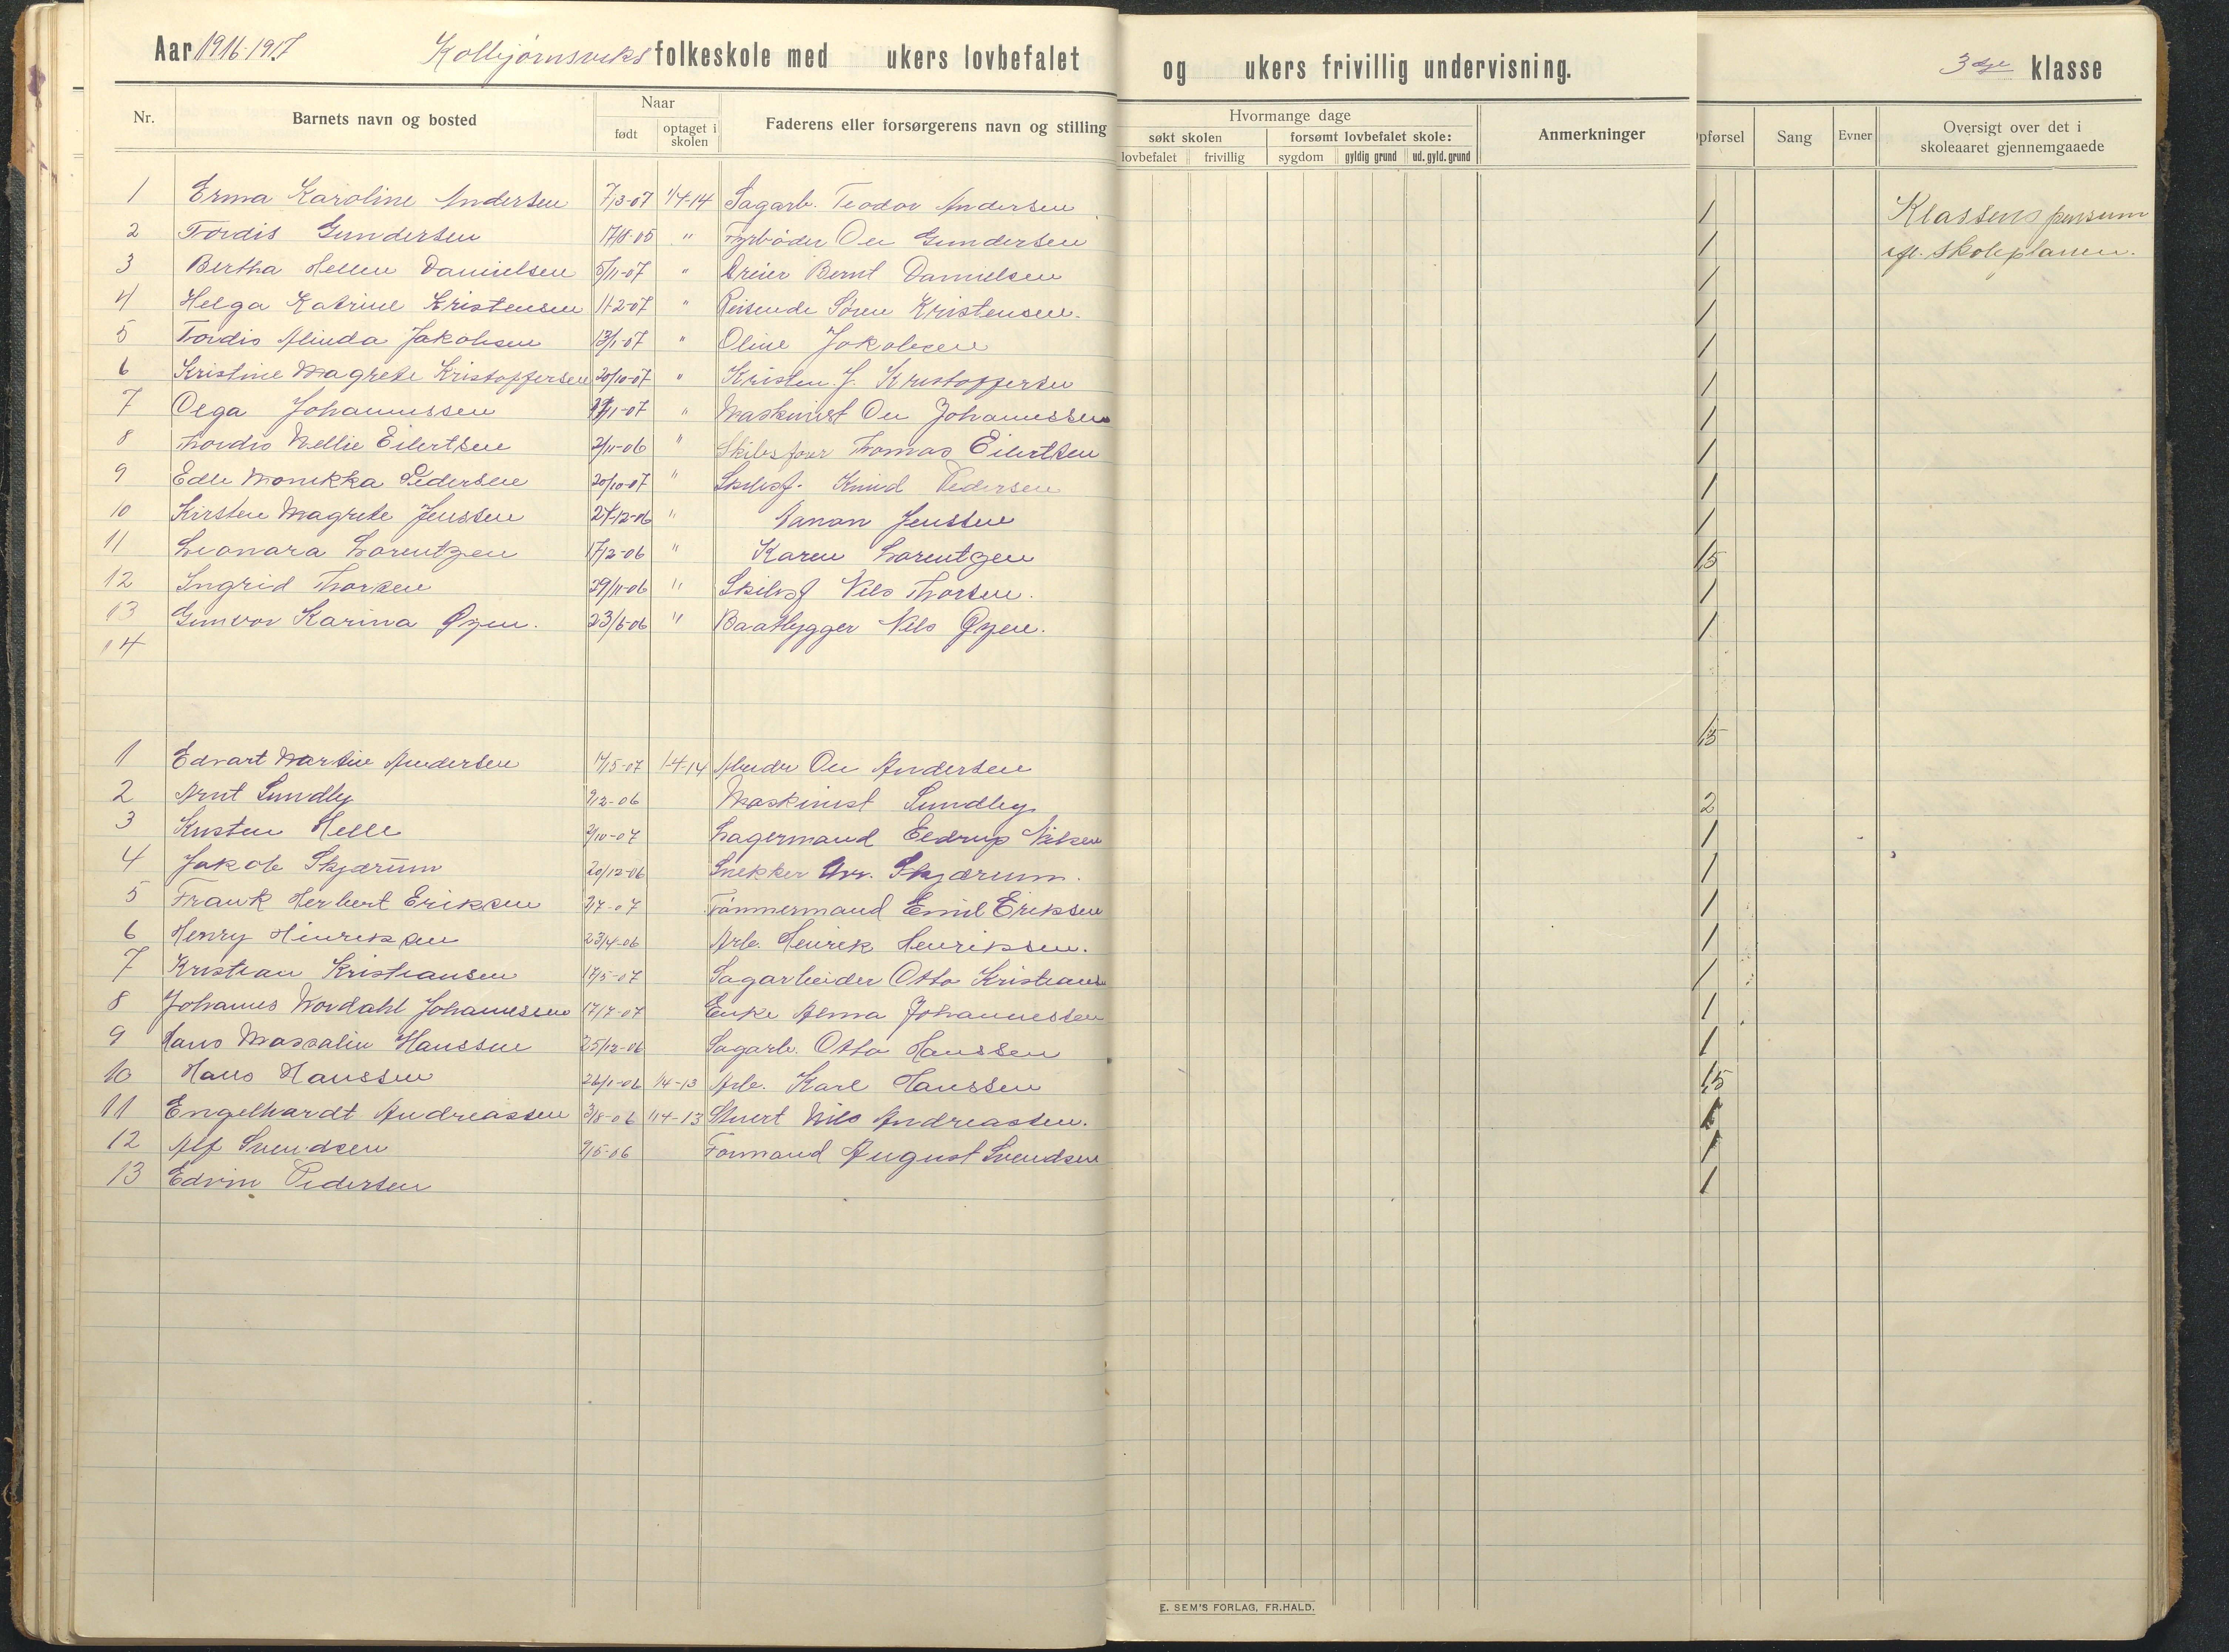 Aar 1916-1917 Kolbjørnsviks folkeskole med ukers lovbefalet og ukers frivillig undervisning. 3dje klasse
Nr. Barnets navn og bosted Naar født optaget i skolen Faderens eller forsørgerens navn og stilling
Hvormange dage
søkt skolen forsømt lovbefalet skole:
lovbefalet frivillig sygdom gyldig grund ud. gyld. grund
Anmerkninger
Opførsel Sang Evner Oversigt over det i skoleaaret gjennemgaaede
1 Erma Karoline Andersen 7/3-07 1/4-14 Sagarb. Teodor Andersen 1 Klassens pensum
2 Tordis Gundersen 17/8-05 " Fyrbøder Ou Gundersen 1 efl. skoleplanen.
3 Bertha Hellen Danielsen 5/11-07 " Dreier Bernt Danielsen 1
4 Helga Katrine Kristensen 11-2-07 " Reisende Søren Kristensen. 1
5 Tordis Alinda Jakobsen 13/1-07 " Oline Jakobsen 1
6 Kristine Magrete Kristoffersen 20/10-07 " Kristen J. Kristoffersen 1
7 Olga Johannessen /11-07 " Maskinist Ou Johannessen 1
8 Thordis Nellie Eilertsen 2/11-06 " Skibsfører Thomas Eilertsen 1
9 Edle Monikka Pedersen 20/10-07 " Skibsf. Knud Pedersen 1
10 Kirsten Magrete Jenssen 27-12-06 " Janan Jenssen 1
11 Leonara Lorentzen 17/2-06 " Karen Lorentzen 1,5
12 Ingrid Thorsen 29/11-06 " Skibsf Nils Thorsen. 1
13 Gunvor Karina Øzen. 23/6-06 " Baatbygger Nils Øzen. 1
14
1 Edvart Martin Andersen 14/5-07 1-4-14 Arbeider Ou Andersen 1,5
2 Arnt Sundby 9/2-06 Maskinist Sundby 2
3 Kristen Helle 2/10-07 Lagermand Eldrup Nilsen 1
4 Jakob Skjærum 20/12-06 Snekker Skjærum. 1
5 Frank Herbert Eriksen 2/7-07 Tømmermand Emil Eriksen 1
6 Henry Hinriksen 23/4-06 Arb. Henrik Henriksen. 1
7 Kristian Kristiansen 17/5-07 Sagarbeider Otto Kristians 1
8 Johannes Nordahl Johannessen 17/7-07 Enke Alma Johannessen 1
9 Hans Massalin Hanssen 25/12-06 Sagarb. Otto Hanssen 1
10 Hans Hanssen 26/1-06 1/4-13 Arb. Karl Hanssen 1,5
11 Engelhardt Andreassen 3/8-06 1/4-13 Stuert Nils Andreassen. 1
12 Alf Svendsen 9/5-06 Formand August Svendsen 1
13 Edvin Pedersen 1
E. SEM'S FORLAG, FR.HALD.